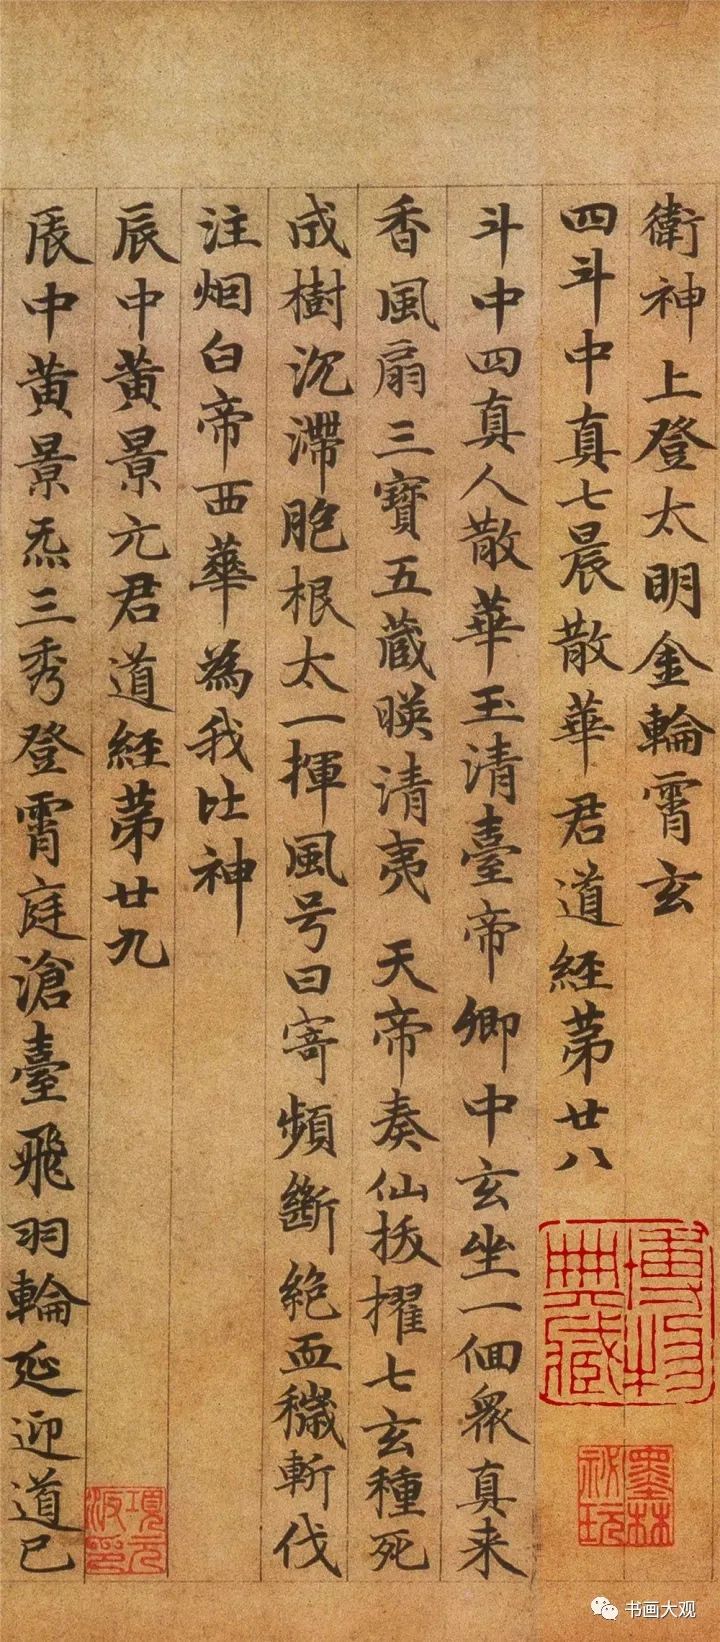 衛神上登太明金輪霄玄
四斗中真七晨散華君道經第廿八
斗中四真人散華玉清臺帝卿中玄坐一佪衆真来
香風扇三寶五藏暎清夷 天帝奏仙拔擢七玄種死
成樹沉滯胞根太一揮風号曰寄頻斷絶血穢斬伐
注烟白帝西華為我比神
辰中黃景元君道經第廿九
辰中黃景炁三秀登霄庭滄臺飛羽輪延迎道已
博物
典藏
墨林
祕玩
項元
汴印
书画大观